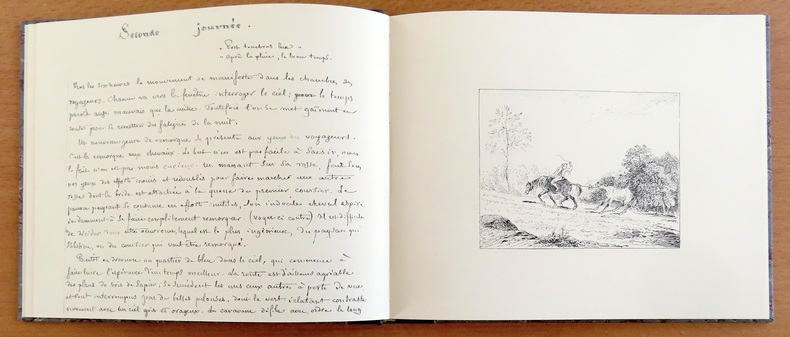 Seconde journée.
"Post tenebras lux"
"Après la pluie, le beau temps.
les six heures le mouvement se manifeste dans les chambres des
voyageurs. Chacun va vers la fenêtre interroger le ciel; le temps
paraît aussi mauvais que la veille. Toutefois l'on se met gaiment en
route pour le des fatigues de la nuit.
Un nouveau genre de remorque se présente aux yeux des voyageurs.
C'est la remorque aux chevaux. Le but n'en est pas facile à saisir, mais
le fait n'en est pas moins curieux. Un manant sur sa rosse, fait sous
nos yeux des efforts inouis et redoublés pour faire marcher une autre
rosse dont la bride est attachée à la queue du premier coursier. Le
pauvre paysan se consume en efforts inutiles, son indocile cheval aspire
à se faire complètement remorquer (voyez ci contre) Il est difficile
de décider dans cette occurrence, lequel est le plus ingénieux, du paysan qui
, ou du coursier qui veut être remorqué.
Bientôt on découvre un quartier de bleu dans le ciel, qui commence à
faire luire l'espérance d'un temps meilleur. La route est d'ailleurs agréable
des bois de sapin, se succèdent les uns aux autres à perte de vue
et sont interrompus par de belles pelouses, dont le vert éclatant contraste
vivement avec un ciel gris et orageux. La caravane défile avec ordre le long